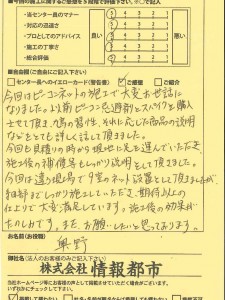 ■今回の施工に関するご感想を5段階で評価下さい。
・当センター員のマナー
・対応の迅速さ
・プロとしてのアドバイス
・施工の丁寧さ
・総合評価
悪い
良い
■自由欄(ご自由にご記入下さい)
□センター長へのイエローカード(警告書) ☑ご感想 □ご紹介
今回はピーコンネットの施工で大変お世話に
なりました。以前ピーコン忌避剤とスパイクを購入
させて頂き、鳥の習性、それに応じた商品の説明
などをとても詳しく話して頂きました。
今回も見積りの時から現地に足を運んでいただき
施工後の補償等もしっかり説明して頂きました。
今回は違う現場で9室のネット設置として頂きましたが、
細部までしっかり施工していただき、期待以上の
仕上りで大変満足しています。施工後の効果が
たのしみです。また、お願いしたいと思っております。
お名前(お役職)
奥野
御社名(法人のお客様のみご記入下さい)
株式会社 情報都市
当社ホームページ等にお客様の声として掲載させていただく場合がございます。